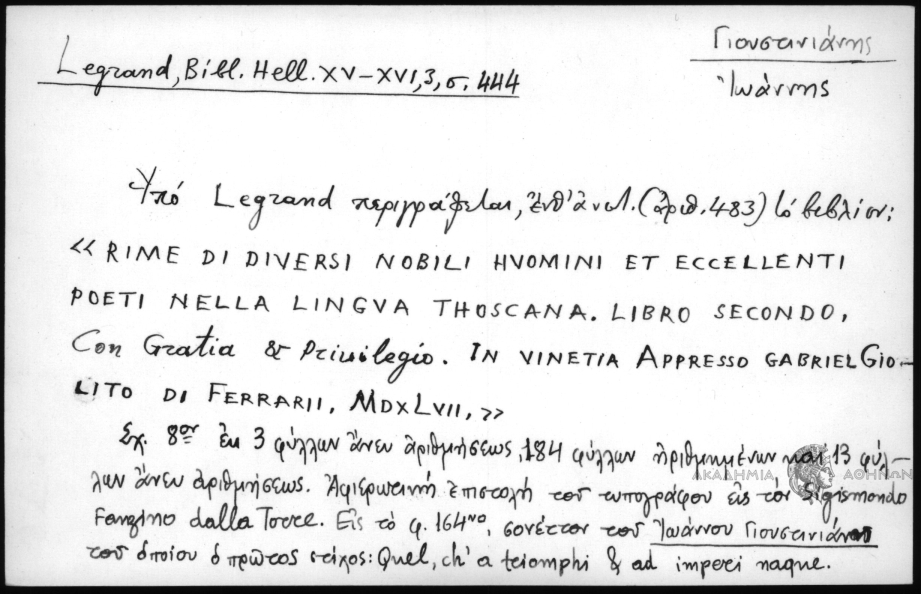 Γιουστινιάνης
Ἰωάννης
Legrand, Bibl. Hell. XV–XVI, 3, σ. 444
Ὑπό Legrand περιγράφεται, ἐνθ' ἀνωτ. (ἀριθ. 483) τό βιβλίον:
«RIME DI DIVERSI NOBILI HVOMINI ET ECCELLENTI
POETI NELLA LINGVA THOSCANA. LIBRO SECONDO,
Con Gratia & Priuilegio. IN VINETIA APPRESSO GABRIEL GIO–
LITO DI FERRARII, MDXLVII,»
Σχ. 8ον ἐκ 3 φύλλων ἄνευ ἀριθμήσεως, 184 φύλλων ἠριθμημένων καί 13 φύλ–
λων ἄνευ ἀριθμήσεως. Ἀφιερωτική ἐπιστολή τοῦ τυπογράφου εἰς τόν Sigismondo
Fanzino dalla Torre. Εἰς τό φ. 164νο, σονέττον τοῦ Ἰωάννου Γιουστινιάνη
τοῦ ὁποίου ὁ πρῶτος στίχος: Quel, ch' a triomphi & ad imperi naque.
ΑΚΑΔΗΜΙΑ ΑΘΗΝΩΝ